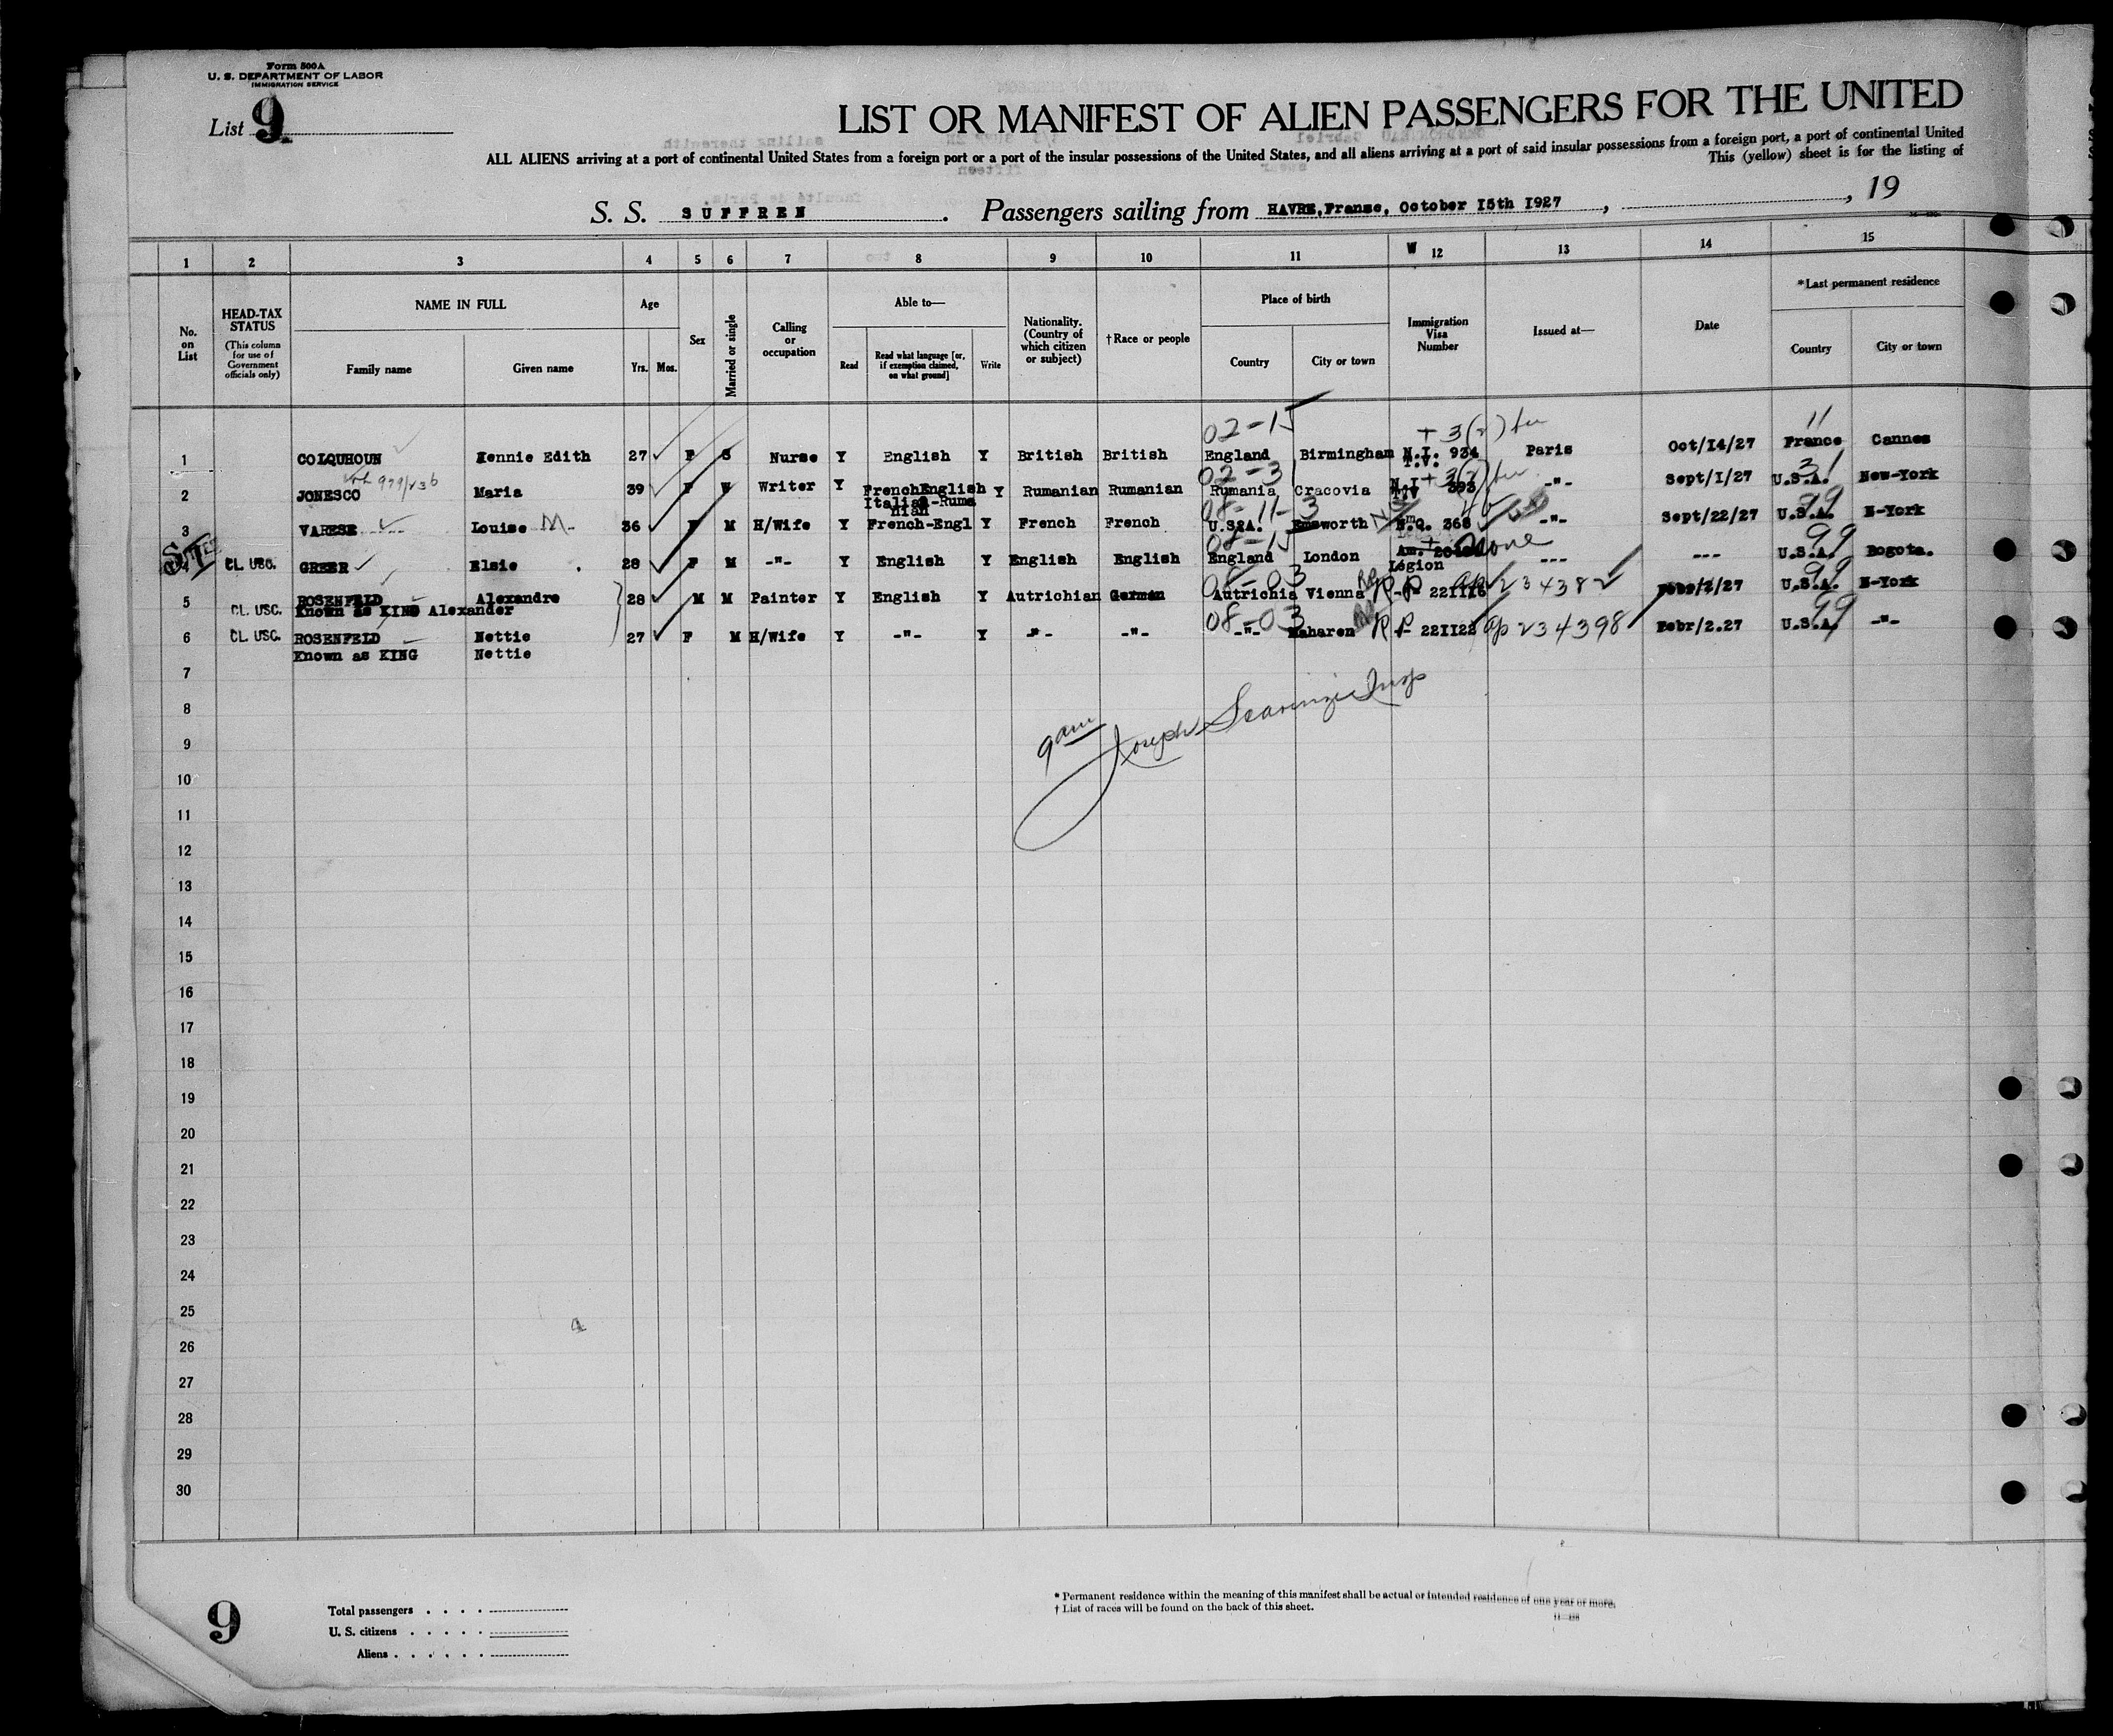 Form 500A
U. S. DEPARTMENT OF LABOR
IMMIGRATION SERVICE
List 9
LIST OR MANIFEST OF ALIEN PASSENGERS FOR THE UNITED
ALL ALIENS arriving at a port of continental United States from a foreign port or a port of the insular possessions of the United States, and all aliens arriving at a port of said insular possessions from a foreign port, a port of continental United
This (yellow) sheet is for the listing of
S. S. SUFFREN . Passengers sailing from HAVRE, Franse, October 15th 1927 , , 19
1 2 3 4 5 6 7 8 9 10 11 W 12 13 14 15
No. on List
HEAD-TAX STATUS
(This column for use of Government officials only)
NAME IN FULL
Family name Given name
Age
Yrs. Mos.
Sex
Married or single
Calling or occupation
Able to—
Read Read what language [or, if exemption claimed, on what ground] Write
Nationality. (Country of which citizen or subject)
†Race or people
Place of birth
Country City or town
Immigration Visa Number
Issued at—
Date
*Last permanent residence
Country City or town
02-15 + 3(2) 11
1 COLQUHOUN Kennie Edith 27 F S Nurse Y English Y British British England Birmingham N.I. 934 Paris Oct/14/27 France Cannes
T.V.
02-3 + 3(2) 31
2 JONESCO Maria 39 F W Writer Y FrenchEnglish Y Rumanian Rumanian Rumania Cracovia N.I 393 -"- Sept/1/27 U.S.A. New-York
Italian-Ruma
nian
08-11-3 99
3 VARESE Louise M- 36 F M H/Wife Y French-Engl Y French French U.S.A. Emsworth N.Q. 368 -"- Sept/22/27 U.S.A. N-York
08-15 None 99
4 CL. USC. GREER Elsie 28 F M -"- Y English Y English English England London Am. Légion --- --- U.S.A. Bogota.
08-03 99
5 CL. USC. ROSENFELD Alexandre 28 M M Painter Y English Y Autrichian German Autrichia Vienna RP 221116 234382 Febr/2/27 U.S.A. N-York
Known as KING Alexander
08-03 99
6 CL. USC. ROSENFELD Nettie 27 F M H/Wife Y -"- Y -"- -"- -"- Maharen RP 221122 234398 Febr/2.27 U.S.A. -"-
Known as KING Nettie
7
8
9 9 am Joseph Insp
10
11
12
13
14
15
16
17
18
19
20
21
22
23
24
25
26
27
28
29
30
* Permanent residence within the meaning of this manifest shall be actual or intended residence of one year or more.
† List of races will be found on the back of this sheet.
9
Total passengers . . . .
U. S. citizens . . . . .
Aliens . . . . . .